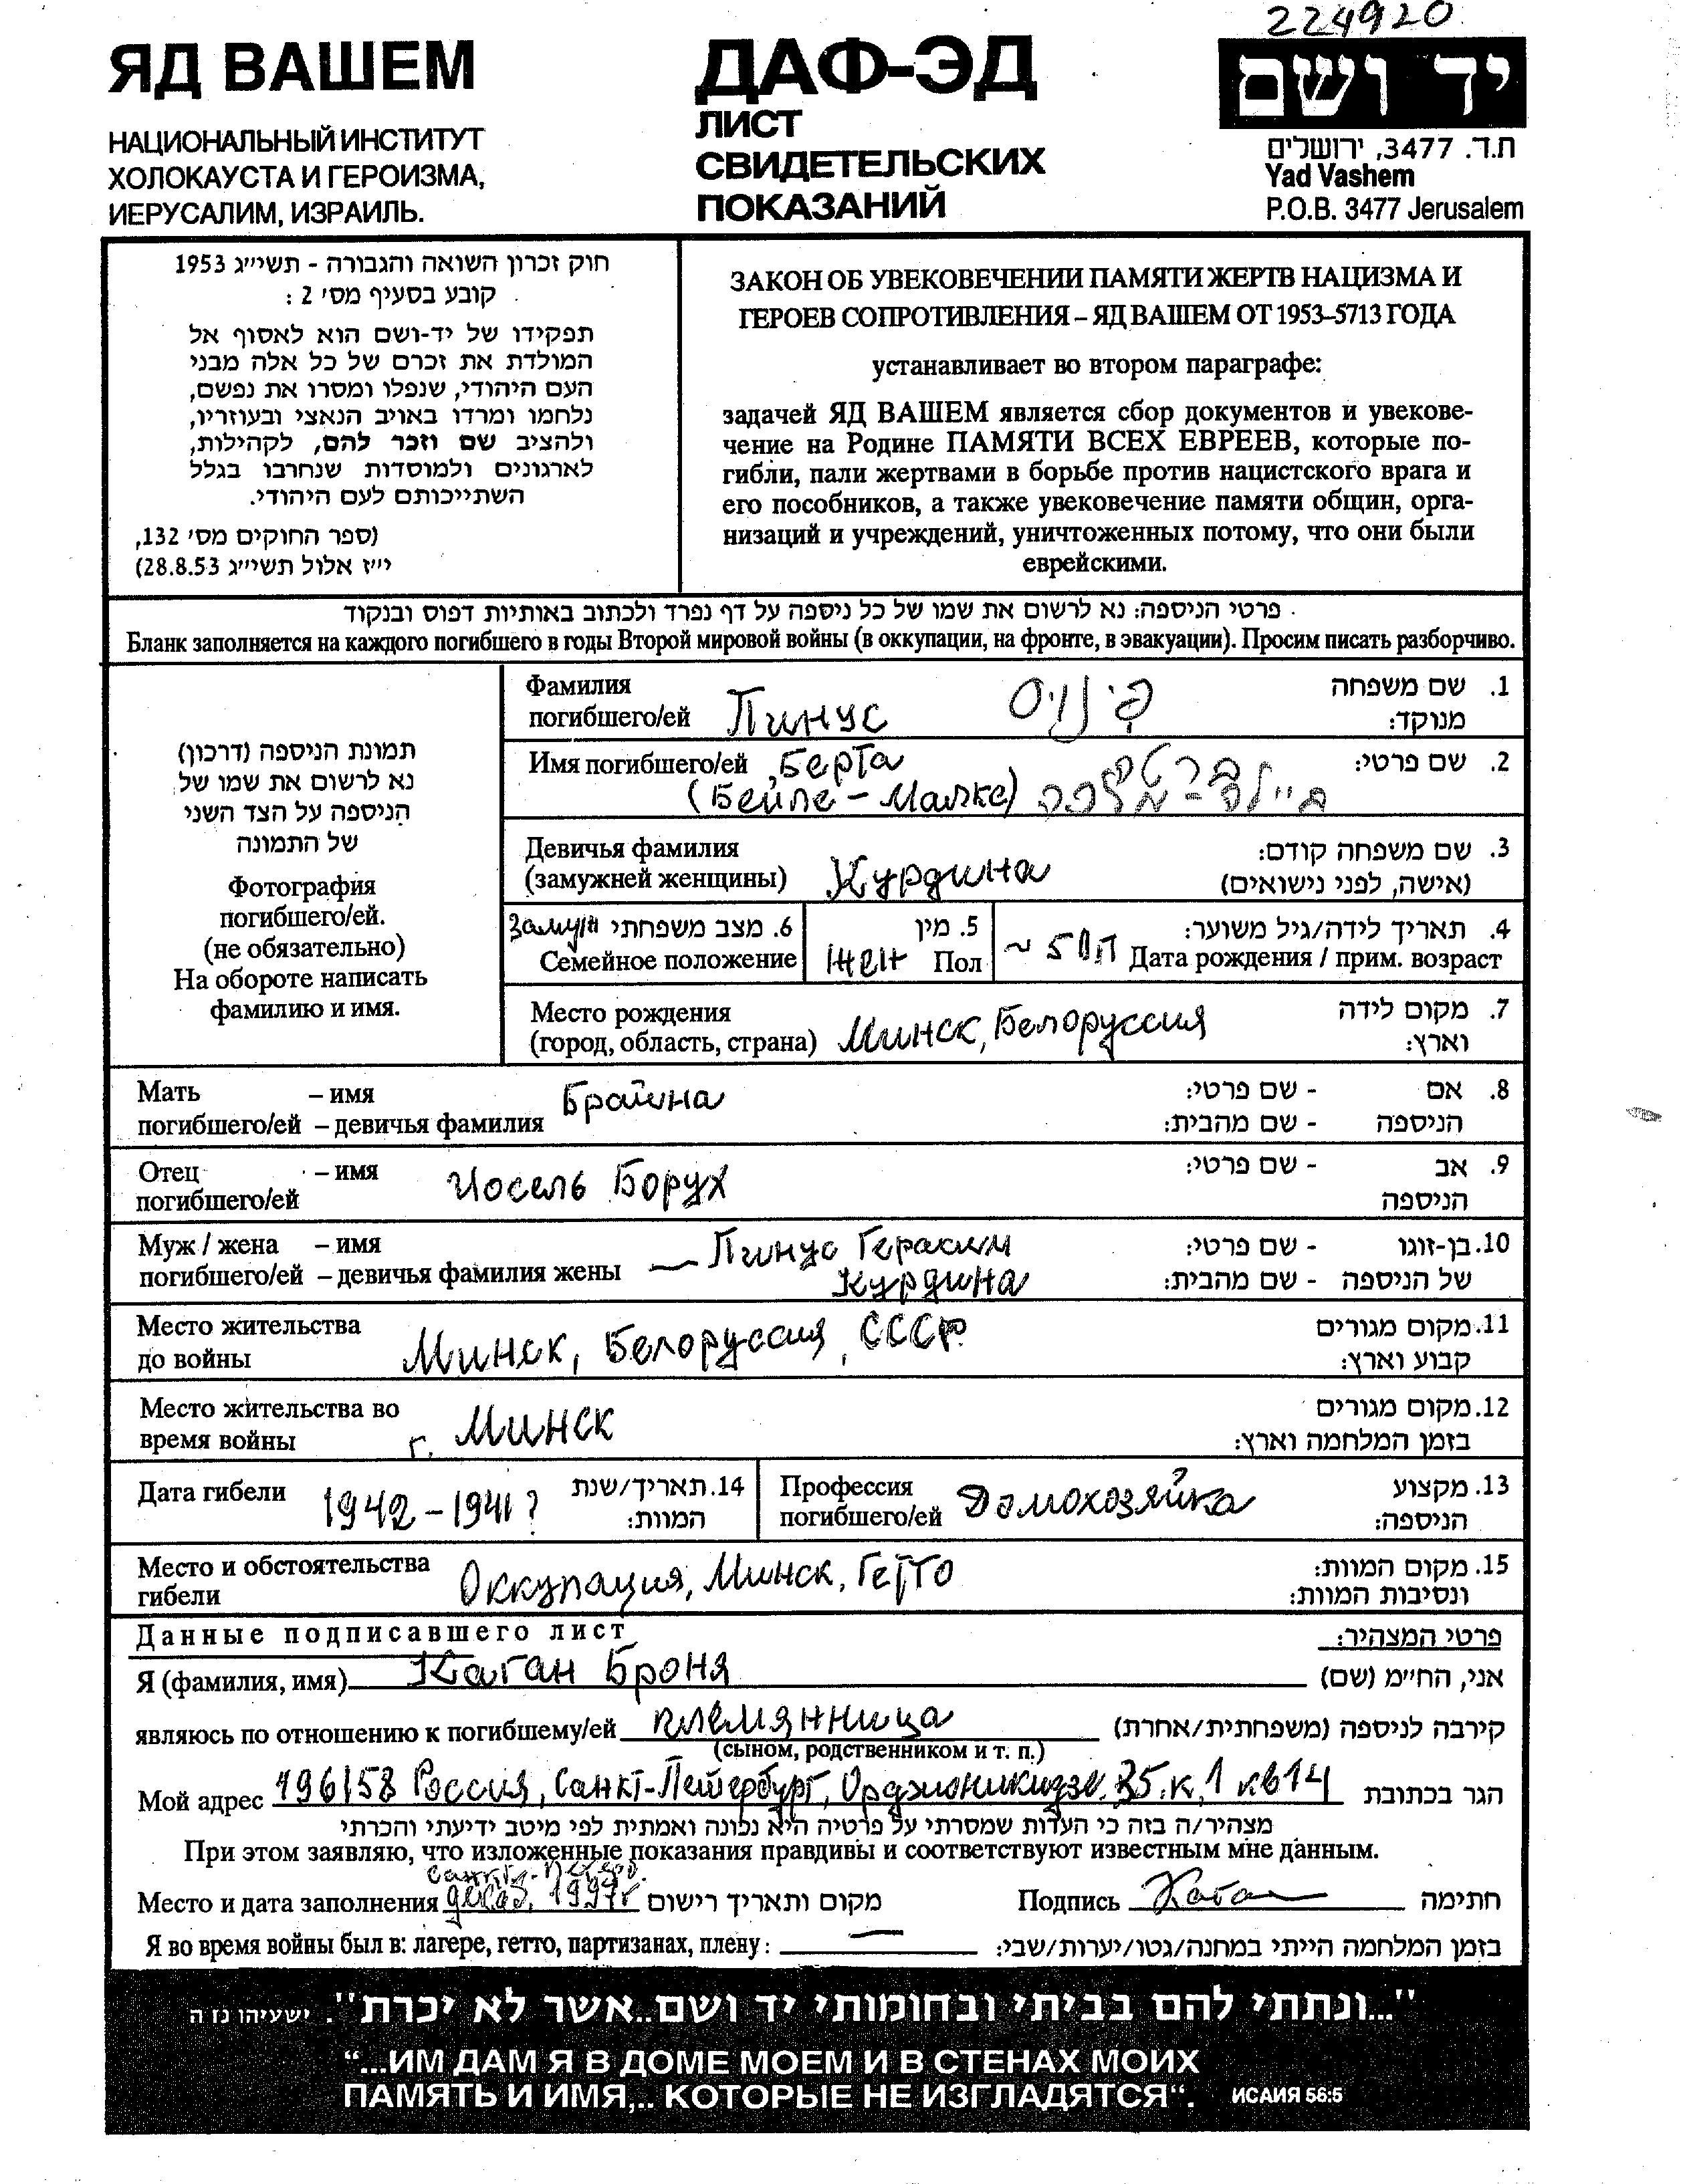 224920
ЯД ВАШЕМ
НАЦИОНАЛЬНЫЙ ИНСТИТУТ
ХОЛОКАУСТА И ГЕРОИЗМА,
ИЕРУСАЛИМ, ИЗРАИЛЬ.
ДАФ-ЭД
ЛИСТ
СВИДЕТЕЛЬСКИХ
ПОКАЗАНИЙ
יד ושם
ת.ד. 3477, ירושלים
Yad Vashem
P.O.B. 3477 Jerusalem
חוק זכרון השואה והגבורה - תשי״ג 1953
קובע בסעיף מס׳ 2 :
תפקידו של יד-ושם הוא לאסוף אל
המולדת את זכרם של כל אלה מבני
העם היהודי, שנפלו ומסרו את נפשם,
נלחמו ומרדו באויב הנאצי ובעוזריו,
ולהציב שם וזכר להם, לקהילות,
לארגונים ולמוסדות שנחרבו בגלל
השתייכותם לעם היהודי.
(ספר החוקים מס׳ 132,
י״ז אלול תשי״ג 28.8.53)
ЗАКОН ОБ УВЕКОВЕЧЕНИИ ПАМЯТИ ЖЕРТВ НАЦИЗМА И
ГЕРОЕВ СОПРОТИВЛЕНИЯ – ЯД ВАШЕМ ОТ 1953–5713 ГОДА
устанавливает во втором параграфе:
задачей ЯД ВАШЕМ является сбор документов и увекове-
чение на Родине ПАМЯТИ ВСЕХ ЕВРЕЕВ, которые по-
гибли, пали жертвами в борьбе против нацистского врага и
его пособников, а также увековечение памяти общин, орга-
низаций и учреждений, уничтоженных потому, что они были
еврейскими.
פרטי הניספה: נא לרשום את שמו של כל ניספה על דף נפרד ולכתוב באותיות דפוס ובנקוד
Бланк заполняется на каждого погибшего в годы Второй мировой войны (в оккупации, на фронте, в эвакуации). Просим писать разборчиво.
תמונת הניספה (דרכון)
נא לרשום את שמו של
הניספה על הצד השני
של התמונה
Фотография
погибшего/ей.
(не обязательно)
На обороте написать
фамилию и имя.
Фамилия 1. שם משפחה
погибшего/ей Пинус פינוס מנוקד:
Имя погибшего/ей Берта ברטה 2. שם פרטי:
(Бейле - Малке) ביילה - מלכה
Девичья фамилия 3. שם משפחה קודם:
(замужней женщины) Курдина (אישה, לפני נישואים)
замуж 6. מצב משפחתי 5. מין 4. תאריך לידה/גיל משוער:
Семейное положение жен Пол ~ 50л Дата рождения / прим. возраст
Место рождения 7. מקום לידה
(город, область, страна) Минск, Белоруссия וארץ:
Мать – имя Брайна 8. אם - שם פרטי:
погибшего/ей – девичья фамилия הניספה - שם מהבית:
Отец – имя Иосель Борух 9. אב - שם פרטי:
погибшего/ей הניספה
Муж / жена – имя Пинус Герасим 10. בן-זוגו - שם פרטי:
погибшего/ей – девичья фамилия жены Курдина של הניספה - שם מהבית:
Место жительства 11. מקום מגורים
до войны Минск, Белоруссия, СССР קבוע וארץ:
Место жительства во 12. מקום מגורים
время войны г. Минск בזמן המלחמה וארץ:
Дата гибели 1942 – 1941? 14. תאריך/שנת המוות:
Профессия 13. מקצוע
погибшего/ей Домохозяйка הניספה:
Место и обстоятельства 15. מקום המוות:
гибели Оккупация, Минск, Гетто ונסיבות המוות:
Данные подписавшего лист פרטי המצהיר:
Я (фамилия, имя) Каган Броня אני, הח״מ (שם)
являюсь по отношению к погибшему/ей племянница קירבה לניספה (משפחתית/אחרת)
(сыном, родственником и т. п.)
Мой адрес 196158 Россия, Санкт-Петербург, Орджоникидзе 35 к 1 кв 14 הגר בכתובת
מצהיר/ה בזה כי העדות שמסרתי על פרטיה היא נכונה ואמתית לפי מיטב ידיעתי והכרתי
При этом заявляю, что изложенные показания правдивы и соответствуют известным мне данным.
Санкт-Петерб.
Место и дата заполнения 1997г מקום ותאריך רישום Подпись Каган חתימה
Я во время войны был в: лагере, гетто, партизанах, плену: — בזמן המלחמה הייתי במחנה/גטו/יערות/שבי:
"...ונתתי להם בביתי ובחומותי יד ושם..אשר לא יכרת". ישעיהו נו ה
“...ИМ ДАМ Я В ДОМЕ МОЕМ И В СТЕНАХ МОИХ
ПАМЯТЬ И ИМЯ,.. КОТОРЫЕ НЕ ИЗГЛАДЯТСЯ“. ИСАИЯ 56:5